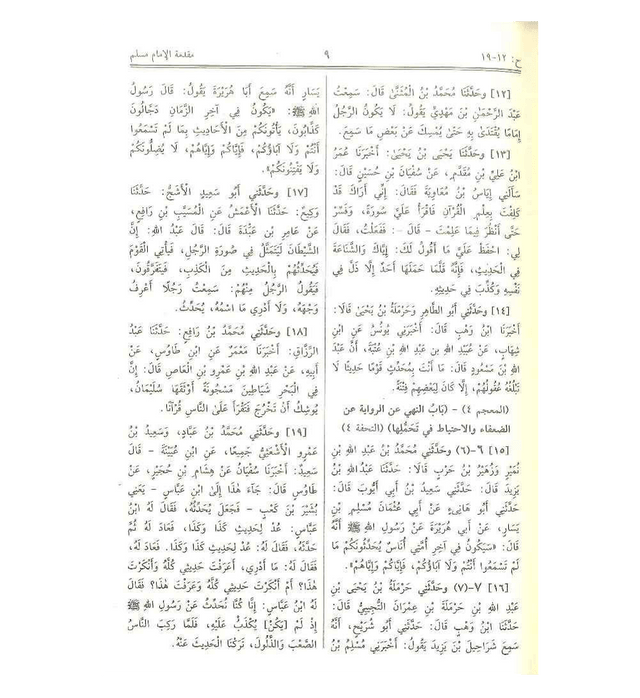 ح: ١٢-١٩
٩
مقدمة الإمام مسلم
[١٢] وحَدَّثَنَا مُحَمَّدُ بْنُ الْمُثَنَّى قَالَ: سَمِعْتُ
عَبْدَ الرَّحْمٰنِ بْنَ مَهْدِيٍّ يَقُولُ: لَا يَكُونُ الرَّجُلُ
إِمَامًا يُقْتَدَىٰ بِهِ حَتَّىٰ يُمْسِكَ عَنْ بَعْضِ مَا سَمِعَ.
[١٣] وحَدَّثَنَا يَحْيَى بْنُ يَحْيَىٰ: أَخْبَرَنَا عُمَرُ
ابْنُ عَلِيِّ بْنِ مُقَدَّمٍ، عَنْ سُفْيَانَ بْنِ حُسَيْنٍ قَالَ:
سَأَلَنِي إِيَاسُ بْنُ مُعَاوِيَةَ فَقَالَ: إِنِّي أَرَاكَ قَدْ
كَلِفْتَ بِعِلْمِ الْقُرْآنِ فَاقْرَأْ عَلَيَّ سُورَةً، وَفَسِّرْ
حَتَّىٰ أَنْظُرَ فِيمَا عَلِمْتَ - قَالَ - : فَفَعَلْتُ، فَقَالَ
لِي: احْفَظْ عَلَيَّ مَا أَقُولُ لَكَ: إِيَّاكَ وَالشَّنَاعَةَ
فِي الْحَدِيثِ، فَإِنَّهُ قَلَّمَا حَمَلَهَا أَحَدٌ إِلَّا ذَلَّ فِي
نَفْسِهِ وَكُذِّبَ فِي حَدِيثِهِ.
[١٤] وحَدَّثَنِي أَبُو الطَّاهِرِ وَحَرْمَلَةُ بْنُ يَحْيَىٰ قَالَا:
أَخْبَرَنَا ابْنُ وَهْبٍ قَالَ: أَخْبَرَنِي يُونُسُ عَنِ ابْنِ
شِهَابٍ، عَنْ عُبَيْدِ اللهِ بن عَبْدِ اللهِ بْنِ عُتْبَةَ، أَنَّ عَبْدَ
اللهِ بْنَ مَسْعُودٍ قَالَ: مَا أَنْتَ بِمُحَدِّثٍ قَوْمًا حَدِيثًا لَا
تَبْلُغُهُ عُقُولُهُمْ، إِلَّا كَانَ لِبَعْضِهِمْ فِتْنَةً.
(المعجم ٤) - (بَابُ النهي عن الرواية عن
الضعفاء والاحتياط في تَحَمُّلِها) (التحفة ٤)
[١٥] ٦-(٦) وحَدَّثَنِي مُحَمَّدُ بْنُ عَبْدِ اللهِ بْنِ
نُمَيْرٍ وَزُهَيْرُ بْنُ حَرْبٍ قَالَا: حَدَّثَنَا عَبْدُ اللهِ بْنُ
يَزِيدَ قَالَ: حَدَّثَنِي سَعِيدُ بْنُ أَبِي أَيُّوبَ قَالَ:
حَدَّثَنِي أَبُو هَانِىءٍ عَنْ أَبِي عُثْمَانَ مُسْلِمِ بْنِ
يَسَارٍ، عَنْ أَبِي هُرَيْرَةَ عَنْ رَسُولِ اللهِ ﷺ أَنَّهُ
قَالَ: «سَيَكُونُ فِي آخِرِ أُمَّتِي أُنَاسٌ يُحَدِّثُونَكُمْ مَا
لَمْ تَسْمَعُوا أَنْتُمْ وَلَا آبَاؤُكُمْ، فَإِيَّاكُمْ وَإِيَّاهُمْ».
[١٦] ٧-(٧) وحَدَّثَنِي حَرْمَلَةُ بْنُ يَحْيَى بْنِ
عَبْدِ اللهِ بْنِ حَرْمَلَةَ بْنِ عِمْرَانَ التُّجِيبِيُّ قَالَ:
حَدَّثَنَا ابْنُ وَهْبٍ قَالَ: حَدَّثَنِي أَبُو شُرَيْحٍ، أَنَّهُ
سَمِعَ شَرَاحِيلَ بْنَ يَزِيدَ يَقُولُ: أَخْبَرَنِي مُسْلِمُ بْنُ
يَسَارٍ أَنَّهُ سَمِعَ أَبَا هُرَيْرَةَ يَقُولُ: قَالَ رَسُولُ
اللهِ ﷺ: «يَكُونُ فِي آخِرِ الزَّمَانِ دَجَّالُونَ
كَذَّابُونَ، يَأْتُونَكُمْ مِنَ الْأَحَادِيثِ بِمَا لَمْ تَسْمَعُوا
أَنْتُمْ وَلَا آبَاؤُكُمْ، فَإِيَّاكُمْ وَإِيَّاهُمْ، لَا يُضِلُّونَكُمْ
وَلَا يَفْتِنُونَكُمْ».
[١٧] وحَدَّثَنِي أَبُو سَعِيدٍ الْأَشَجُّ: حَدَّثَنَا
وَكِيعٌ: حَدَّثَنَا الْأَعْمَشُ عَنِ الْمُسَيَّبِ بْنِ رَافِعٍ،
عَنْ عَامِرِ بْنِ عَبْدَةَ قَالَ: قَالَ عَبْدُ اللهِ: إِنَّ
الشَّيْطَانَ لَيَتَمَثَّلُ فِي صُورَةِ الرَّجُلِ، فَيَأْتِي الْقَوْمَ
فَيُحَدِّثُهُمْ بِالْحَدِيثِ مِنَ الْكَذِبِ، فَيَتَفَرَّقُونَ،
فَيَقُولُ الرَّجُلُ مِنْهُمْ: سَمِعْتُ رَجُلًا أَعْرِفُ
وَجْهَهُ، وَلَا أَدْرِي مَا اسْمُهُ، يُحَدِّثُ.
[١٨] وحَدَّثَنِي مُحَمَّدُ بْنُ رَافِعٍ: حَدَّثَنَا عَبْدُ
الرَّزَّاقِ: أَخْبَرَنَا مَعْمَرٌ عَنِ ابْنِ طَاوُسٍ، عَنْ
أَبِيهِ، عَنْ عَبْدِ اللهِ بْنِ عَمْرِو بْنِ الْعَاصِ قَالَ: إِنَّ
فِي الْبَحْرِ شَيَاطِينَ مَسْجُونَةً أَوْثَقَهَا سُلَيْمَانُ،
يُوشِكُ أَنْ تَخْرُجَ فَتَقْرَأَ عَلَى النَّاسِ قُرْآنًا.
[١٩] وحَدَّثَنِي مُحَمَّدُ بْنُ عَبَّادٍ، وَسَعِيدُ بْنُ
عَمْرٍو الْأَشْعَثِيُّ جَمِيعًا، عَنِ ابْنِ عُيَيْنَةَ - قَالَ
سَعِيدٌ: أَخْبَرَنَا سُفْيَانُ عَنْ هِشَامِ بْنِ حُجَيْرٍ، عَنْ
طَاوُسٍ قَالَ: جَآءَ هٰذَا إِلَى ابْنِ عَبَّاسٍ - يَعْنِي
بُشَيْرَ بْنَ كَعْبٍ - فَجَعَلَ يُحَدِّثُهُ، فَقَالَ لَهُ ابْنُ
عَبَّاسٍ: عُدْ لِحَدِيثِ كَذَا وَكَذَا، فَعَادَ لَهُ ثُمَّ
حَدَّثَهُ، فَقَالَ لَهُ: عُدْ لِحَدِيثِ كَذَا وَكَذَا. فَعَادَ لَهُ،
فَقَالَ لَهُ: مَا أَدْرِي، أَعَرَفْتَ حَدِيثِي كُلَّهُ وَأَنْكَرْتَ
هٰذَا؟ أَمْ أَنْكَرْتَ حَدِيثِي كُلَّهُ وَعَرَفْتَ هٰذَا؟ فَقَالَ
لَهُ ابْنُ عَبَّاسٍ: إِنَّا كُنَّا نُحَدِّثُ عَنْ رَسُولِ اللهِ ﷺ
إِذْ لَمْ [يَكُنْ] يُكْذَبُ عَلَيْهِ، فَلَمَّا رَكِبَ النَّاسُ
الصَّعْبَ وَالذَّلُولَ، تَرَكْنَا الْحَدِيثَ عَنْهُ.